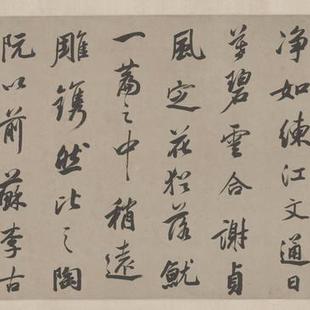 净如練江文通日
莫碧雲合謝貞
風定花猶落魷
一蓄之中稍遠
雕鐫然比之陶
阮以前蘇李古